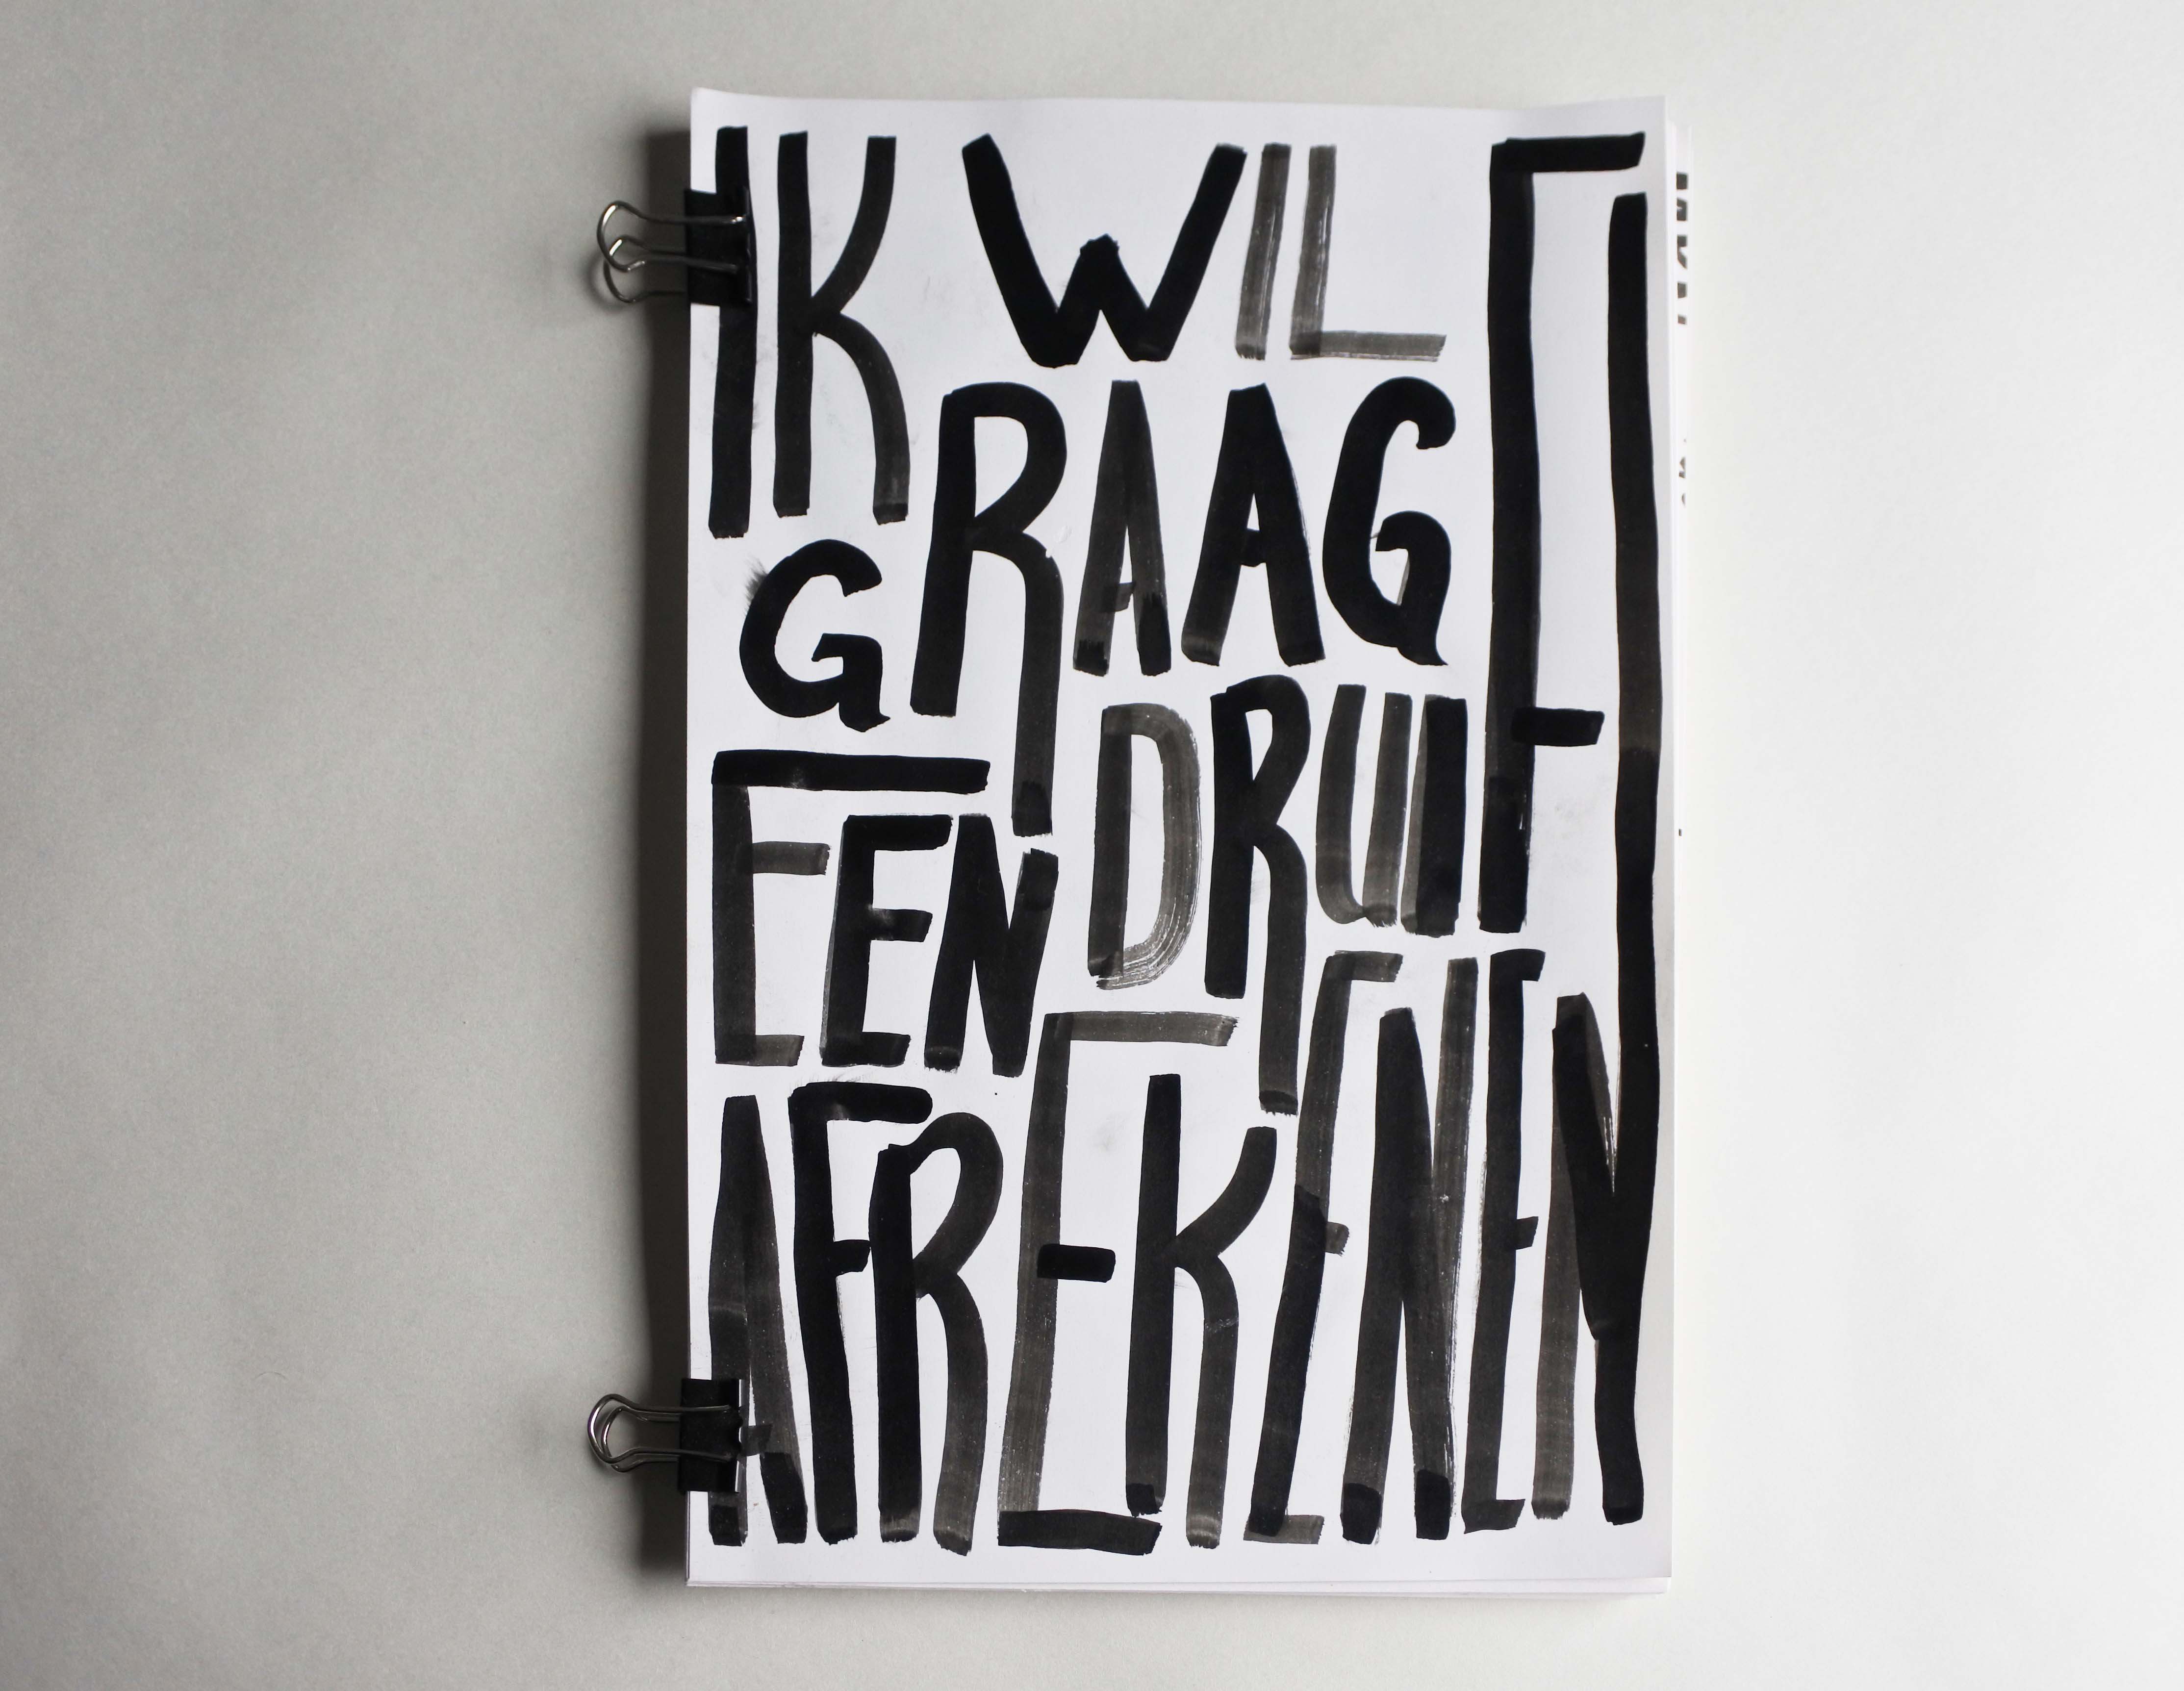 IK WIL
GRAAG
EEN DRUIF
AFREKENEN